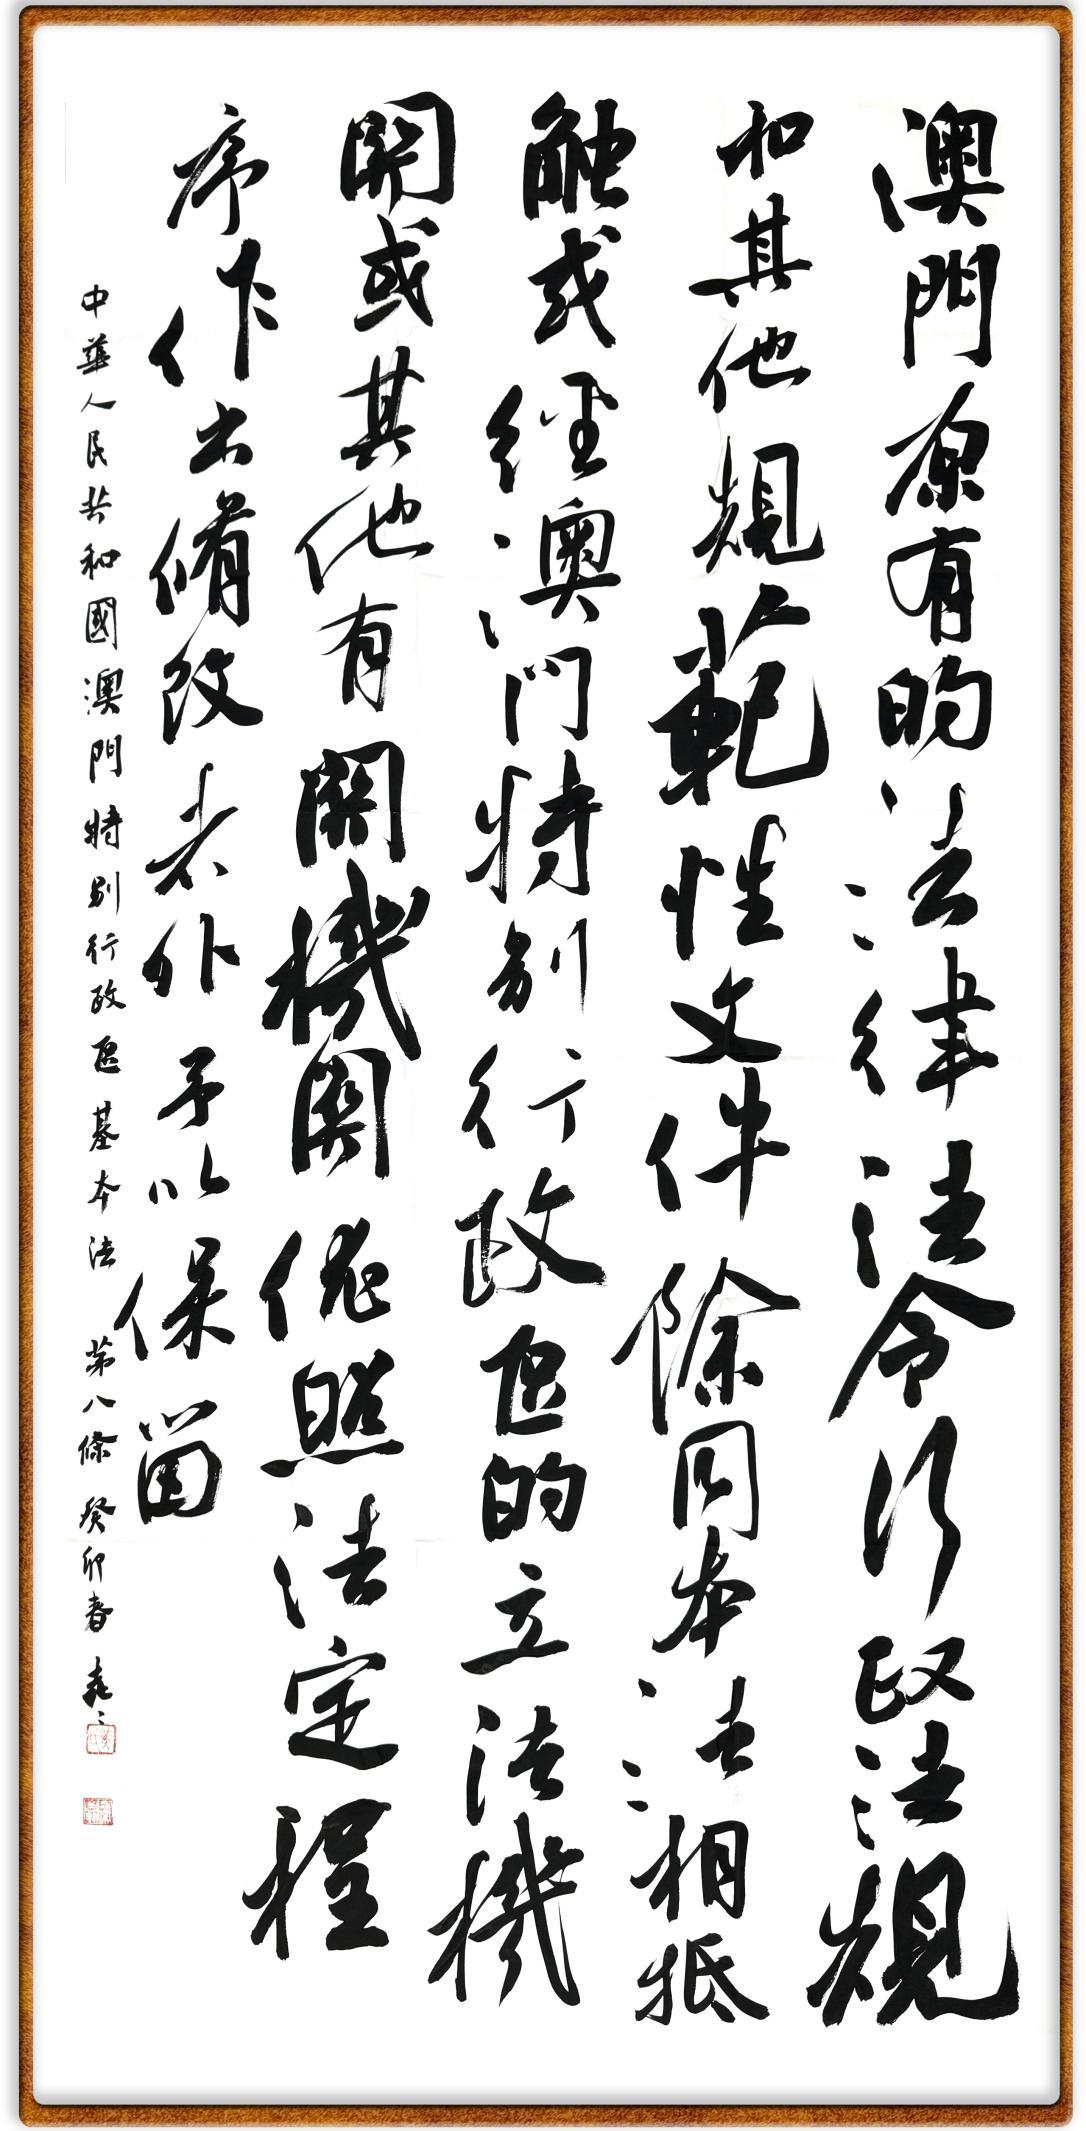 澳門原有的法律法令行政法規
和其他規範性文件除同本法相抵
觸或經澳門特別行政區的立法機
關或其他有關機關依照法定程
序作出修改者外予以保留
中華人民共和國澳門特別行政區基本法 第八條 癸卯春